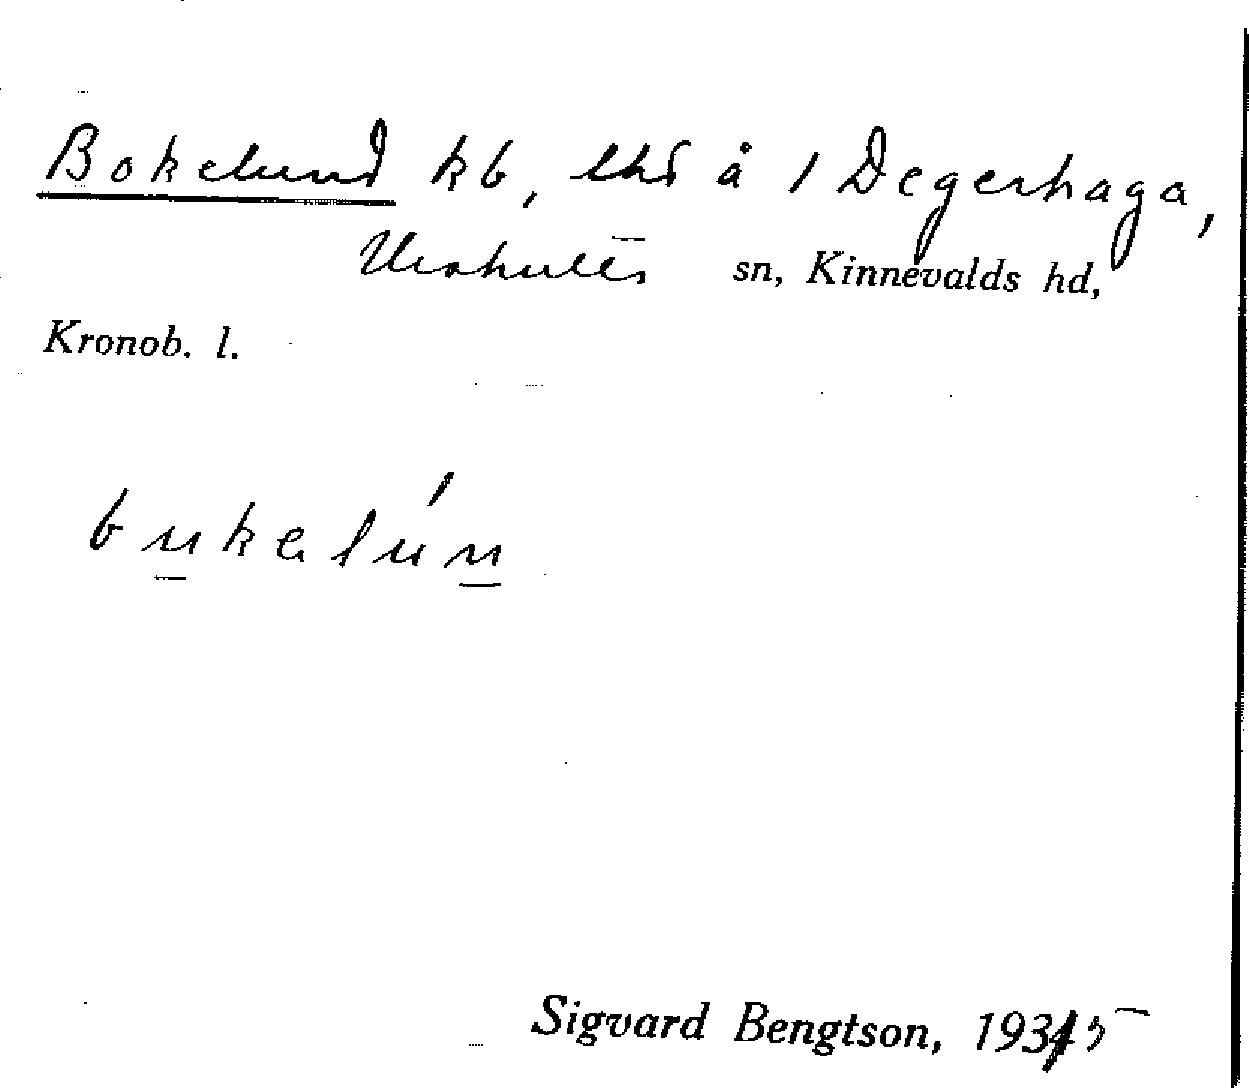 Bokelund kb, lhd å 1 Degerhaga,
Urshults sn, Kinnevalds hd,
Kronob. l.
bukəlún
Sigvard Bengtson, 1935